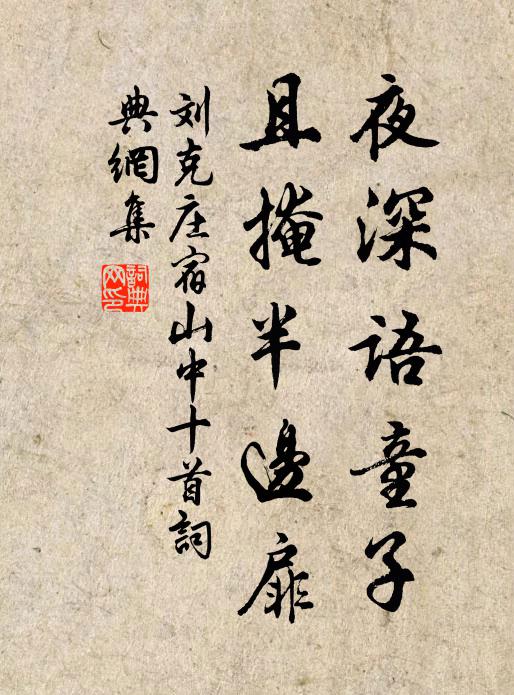 夜深語童子
且掩半邊扉
刘克庄宿山中十首詞
典網集
詞典網印